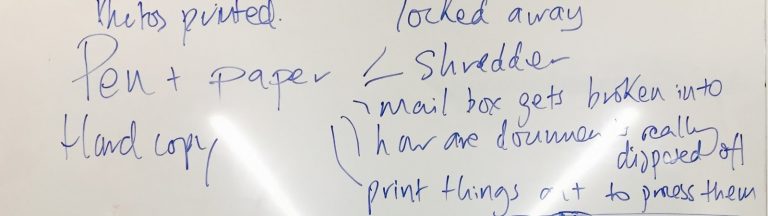 Photos printed.
locked away
Pen + paper
Shredder
mail box gets broken into
Hard copy
how are documen s really
disposed off
print things out to process them